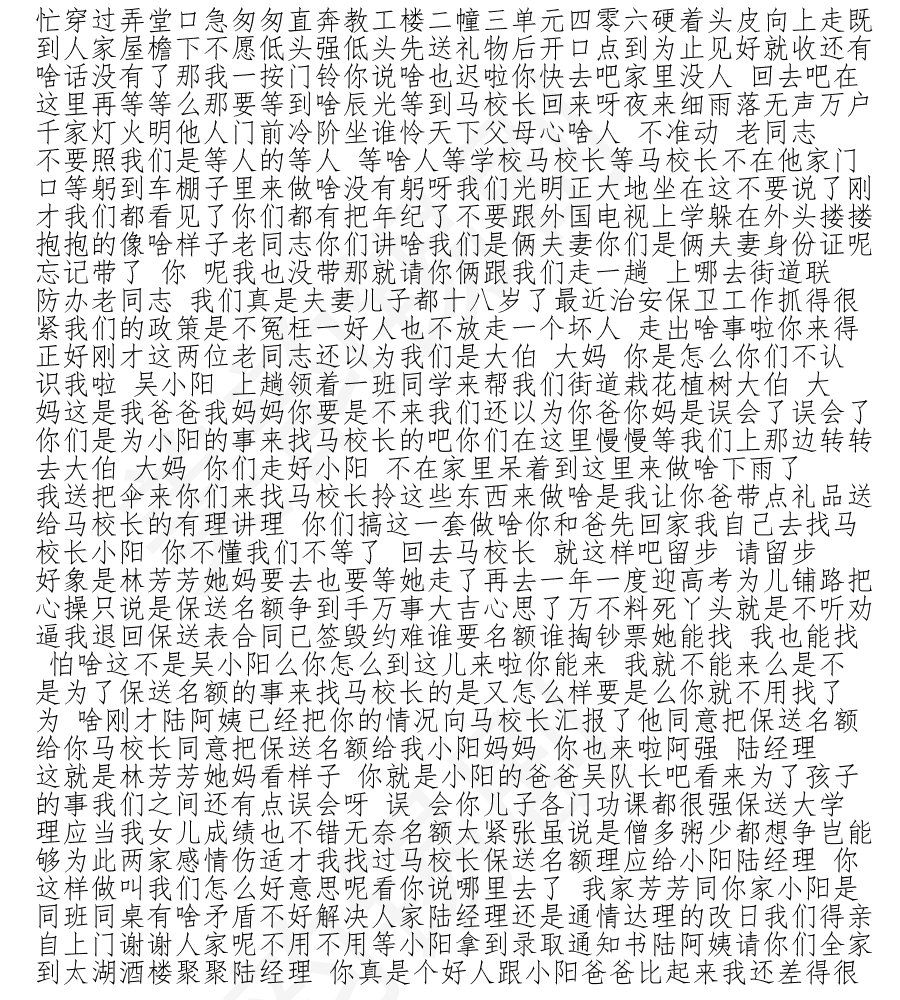 忙穿过弄堂口急匆匆直奔教工楼二幢三单元四零六硬着头皮向上走既
到人家屋檐下不愿低头强低头先送礼物后开口点到为止见好就收还有
啥话没有了那我一按门铃你说啥也迟啦你快去吧家里没人 回去吧在
这里再等等么那要等到啥辰光等到马校长回来呀夜来细雨落无声万户
千家灯火明他人门前冷阶坐谁怜天下父母心啥人 不准动 老同志
不要照我们是等人的等人 等啥人等学校马校长等马校长不在他家门
口等躬到车棚子里来做啥没有躬呀我们光明正大地坐在这不要说了刚
才我们都看见了你们都有把年纪了不要跟外国电视上学躲在外头搂搂
抱抱的像啥样子老同志你们讲啥我们是俩夫妻你们是俩夫妻身份证呢
忘记带了 你 呢我也没带那就请你俩跟我们走一趟 上哪去街道联
防办老同志 我们真是夫妻儿子都十八岁了最近治安保卫工作抓得很
紧我们的政策是不冤枉一好人也不放走一个坏人 走出啥事啦你来得
正好刚才这两位老同志还以为我们是大伯 大妈 你是怎么你们不认
识我啦 吴小阳 上趟领着一班同学来帮我们街道栽花植树大伯 大
妈这是我爸爸我妈妈你要是不来我们还以为你爸你妈是误会了误会了
你们是为小阳的事来找马校长的吧你们在这里慢慢等我们上那边转转
去大伯 大妈 你们走好小阳 不在家里呆着到这里来做啥下雨了
我送把伞来你们来找马校长拎这些东西来做啥是我让你爸带点礼品送
给马校长的有理讲理 你们搞这一套做啥你和爸先回家我自己去找马
校长小阳 你不懂我们不等了 回去马校长 就这样吧留步 请留步
好象是林芳芳她妈要去也要等她走了再去一年一度迎高考为儿铺路把
心操只说是保送名额争到手万事大吉心思了万不料死丫头就是不听劝
逼我退回保送表合同已签毁约难谁要名额谁掏钞票她能找 我也能找
怕啥这不是吴小阳么你怎么到这儿来啦你能来 我就不能来么是不
是为了保送名额的事来找马校长的是又怎么样要是么你就不用找了
为 啥刚才陆阿姨已经把你的情况向马校长汇报了他同意把保送名额
给你马校长同意把保送名额给我小阳妈妈 你也来啦阿强 陆经理
这就是林芳芳她妈看样子 你就是小阳的爸爸吴队长吧看来为了孩子
的事我们之间还有点误会呀 误 会你儿子各门功课都很强保送大学
理应当我女儿成绩也不错无奈名额太紧张虽说是僧多粥少都想争岂能
够为此两家感情伤适才我找过马校长保送名额理应给小阳陆经理 你
这样做叫我们怎么好意思呢看你说哪里去了 我家芳芳同你家小阳是
同班同桌有啥矛盾不好解决人家陆经理还是通情达理的改日我们得亲
自上门谢谢人家呢不用不用等小阳拿到录取通知书陆阿姨请你们全家
到太湖酒楼聚聚陆经理 你真是个好人跟小阳爸爸比起来我还差得很